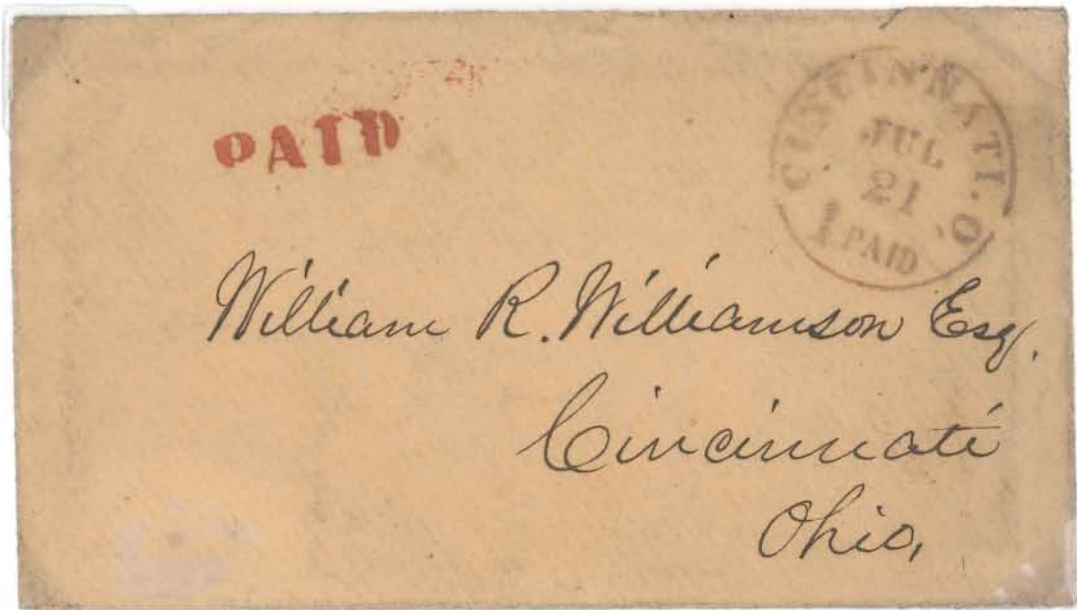 PAID
CINCINNATI. O.
JUL
21
1 PAID
William R. Williamson Esq.
Cincinnati
Ohio,